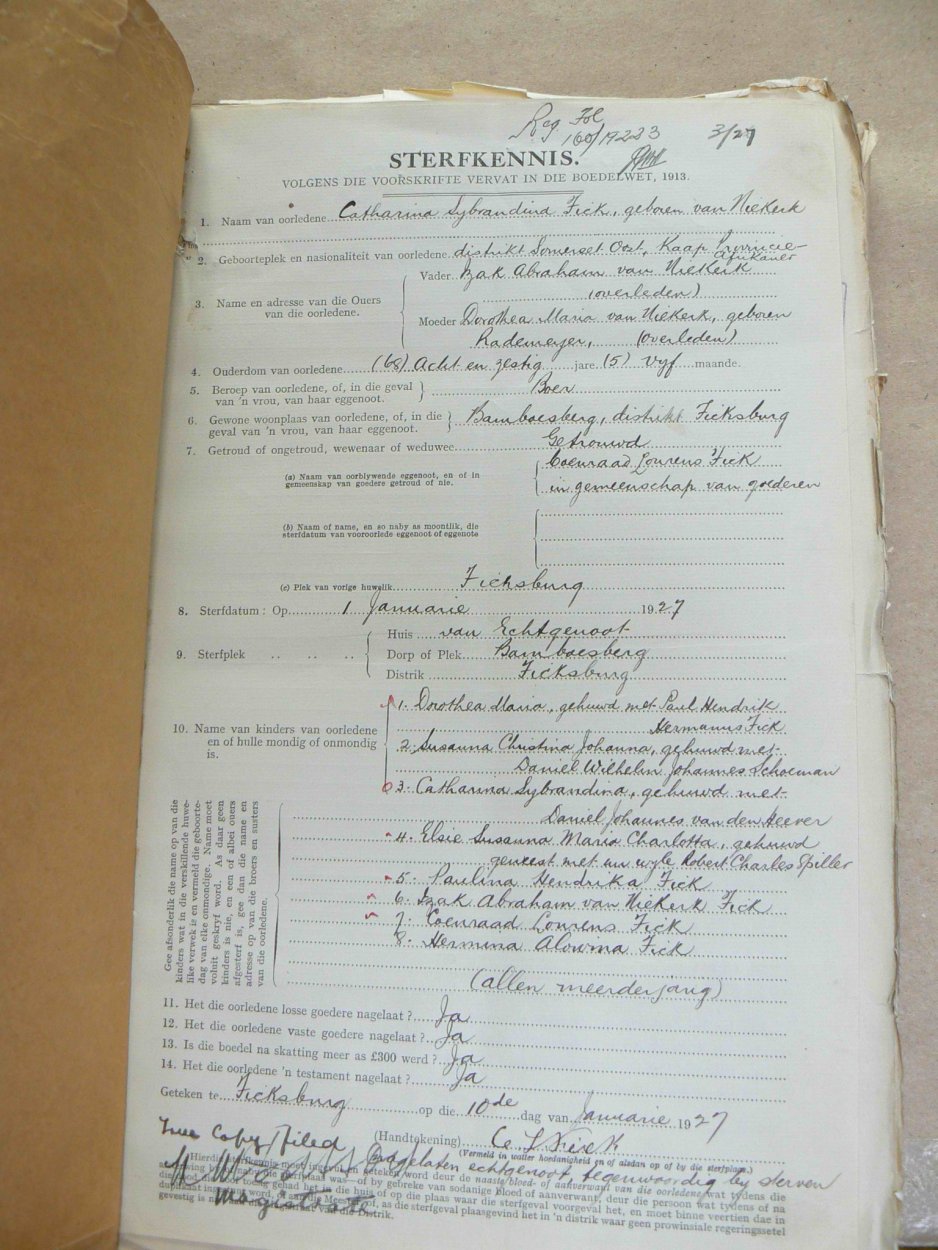 Reg Fol
160/19233 3/27
STERFKENNIS.
VOLGENS DIE VOORSKRIFTE VERVAT IN DIE BOEDELWET, 1913.
1. Naam van oorledene Catharina Sybrandina Fick, geboren van Niekerk
2. Geboorteplek en nasionaliteit van oorledene distrikt Somerset Oost, Kaap Provincie
Afrikaner
3. Name en adresse van die Ouers van die oorledene.
Vader Izak Abraham van Niekerk
(overleden)
Moeder Dorothea Maria van Niekerk, geboren
Rademeyer, (overleden)
4. Ouderdom van oorledene (68) Acht en zestig jare (5) vyf maande.
5. Beroep van oorledene, of, in die geval
van 'n vrou, van haar eggenoot. Boer
6. Gewone woonplaas van oorledene, of, in die
geval van 'n vrou, van haar eggenoot. Bamboesberg, distrikt Ficksburg
7. Getroud of ongetroud, wewenaar of weduwee Getrouwd
(a) Naam van oorblywende eggenoot, en of in
gemeenskap van goedere getroud of nie.
Coenraad Lourens Fick
in gemeenschap van goederen
(b) Naam of name, en so naby as moontlik, die
sterfdatum van vooroorlede eggenoot of eggenote
(c) Plek van vorige huwelik Ficksburg
8. Sterfdatum: Op 1 Januarie 1927
9. Sterfplek
Huis van Echtgenoot
Dorp of Plek Bamboesberg
Distrik Ficksburg
10. Name van kinders van oorledene
en of hulle mondig of onmondig
is.
1. Dorothea Maria, gehuwd met Paul Hendrik
Hermanus Fick
2. Susanna Christina Johanna, gehuwd met
Daniel Wilhelm Johannes Schoeman
3. Catharina Sybrandina, gehuwd met
Daniel Johannes van den Heever
4. Elsie Susanna Maria Charlotta, gehuwd
geweest met nu wyle Robert Charles Spiller
5. Paulina Hendrika Fick
6. Izak Abraham van Niekerk Fick
7. Coenraad Lourens Fick
8. Hermina Fick
(allen meerderjarig)
Gee afsonderlik die name op van die
kinders wat in die verskillende huwe-
like verwek is en vermeld die geboorte-
dag van elke onmondige. Name moet
voluit geskryf word. As daar geen
kinders is nie, en een of albei ouers
afgesterf is, gee dan die name en
adresse op van die broers en susters
van die oorledene.
11. Het die oorledene losse goedere nagelaat? Ja
12. Het die oorledene vaste goedere nagelaat? Ja
13. Is die boedel na skatting meer as £300 werd? Ja
14. Het die oorledene 'n testament nagelaat? Ja
Geteken te Ficksburg op die 10de dag van Januarie 1927
(Handtekening) C L Fick
(Vermeld in watter hoedanigheid en of aldan op of by die sterfplas.)
Nagelaten echtgenoot, tegenwoordig by sterven
True Copy filed
Magistrate